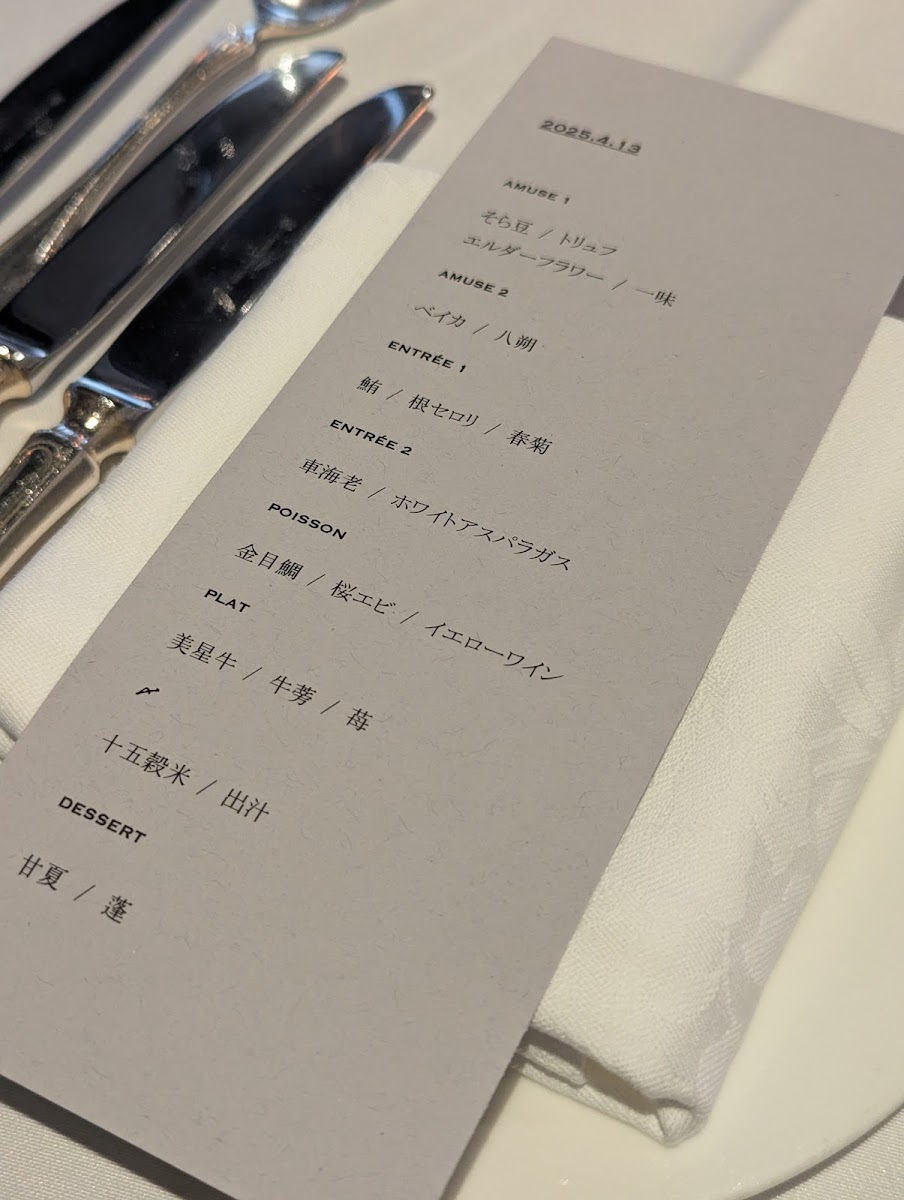 2025.4.13
AMUSE 1
そら豆 / トリュフ
エルダーフラワー / 一味
AMUSE 2
ベイカ / 八朔
ENTRÉE 1
鮪 / 根セロリ / 春菊
ENTRÉE 2
車海老 / ホワイトアスパラガス
POISSON
金目鯛 / 桜エビ / イエローワイン
PLAT
美星牛 / 牛蒡 / 苺
〆
十五穀米 / 出汁
DESSERT
甘夏 / 蓬